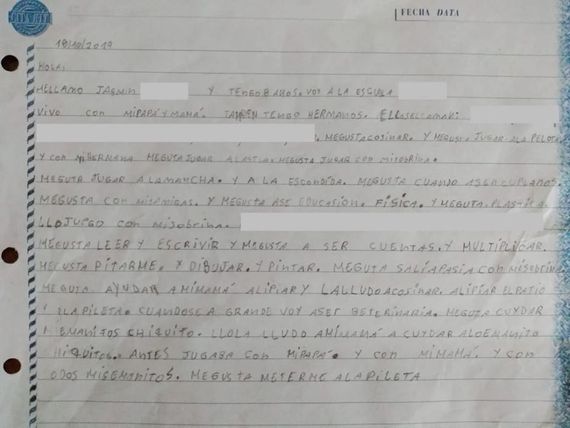 FECHA DATA
18/10/2019
HOLA:
MELLAMO JASMIN Y TENGO 8 AÑOS. VOY A LA ESCUELA
VIVO CON MIPAPÁ Y MAMÁ. TENGO HERMANOS.
MEGUSTA COSINAR. Y MEGUSTA JUGAR ALA PELOTA
Y CON MIHERMANA MEGUTA JUGAR MEGUSTA JUGAR CON MISOBRINA.
MEGUTA JUGAR ALAMANCHA. Y A LA ESCONDIDA. MEGUSTA CUANDO ASEN CUPLAÑOS.
MEGUSTA CON MISAMIGAS. Y MEGUSTA ASE EDUCASIÓN. FÍSICA. Y MEGUTA. PLASTICA.
LLOJUEGO CON MISOBRINA.
MEGUSTA LEER Y ESCRIVIR Y MEGUSTA A SER CUENTAS. Y MULTIPLICAR.
MEGUSTA PITARME. Y DIBUJAR. Y PINTAR. MEGUTA SALIAPASIA CON MISOBRINA
MEGUTA AYUDAR A MIMAMÁ ALIPIAR Y LALLUDO ACOSINAR. ALIPIAR ELPATIO
Y LLAPILETA. CUANDOSE A GRANDE VOY ASER BETERINARIA. MEGUTA CUYDAR
CHIQUITO. LLOLA LLUDO AMIMAMÁ A CUYDAR
CHIQUITOS. ANTES JUGABA CON MIPAPÁ. Y CON MIMAMÁ. Y CON
MEGUSTA METERME A LAPILETA